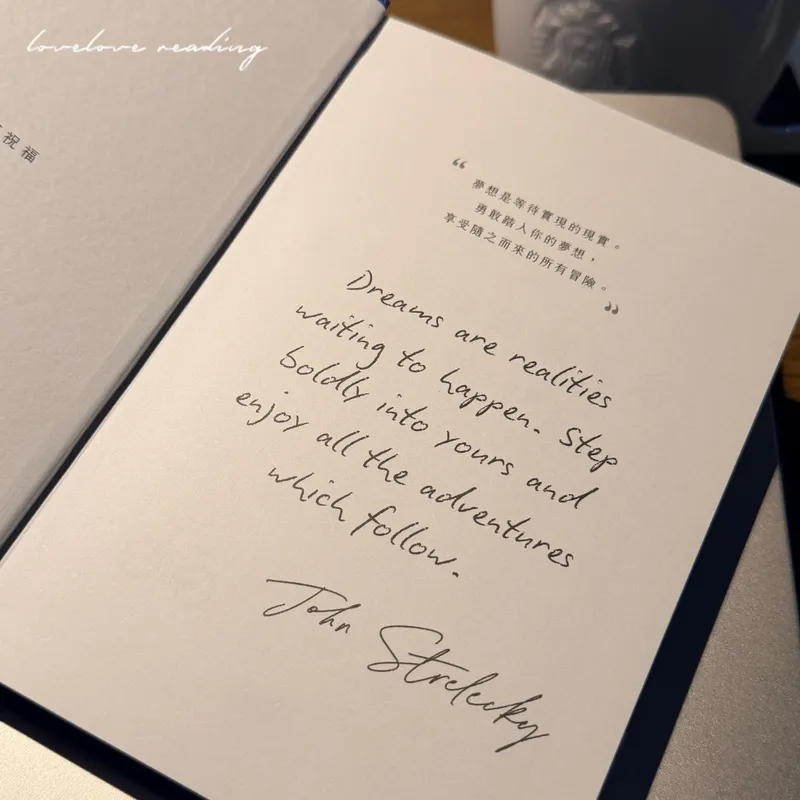 lovelove reading
祝福
“
夢想是等待實現的現實。
勇敢踏入你的夢想，
享受隨之而來的所有冒險。
”
Dreams are realities
waiting to happen. Step
boldly into yours and
enjoy all the adventures
which follow.
John Strelecky